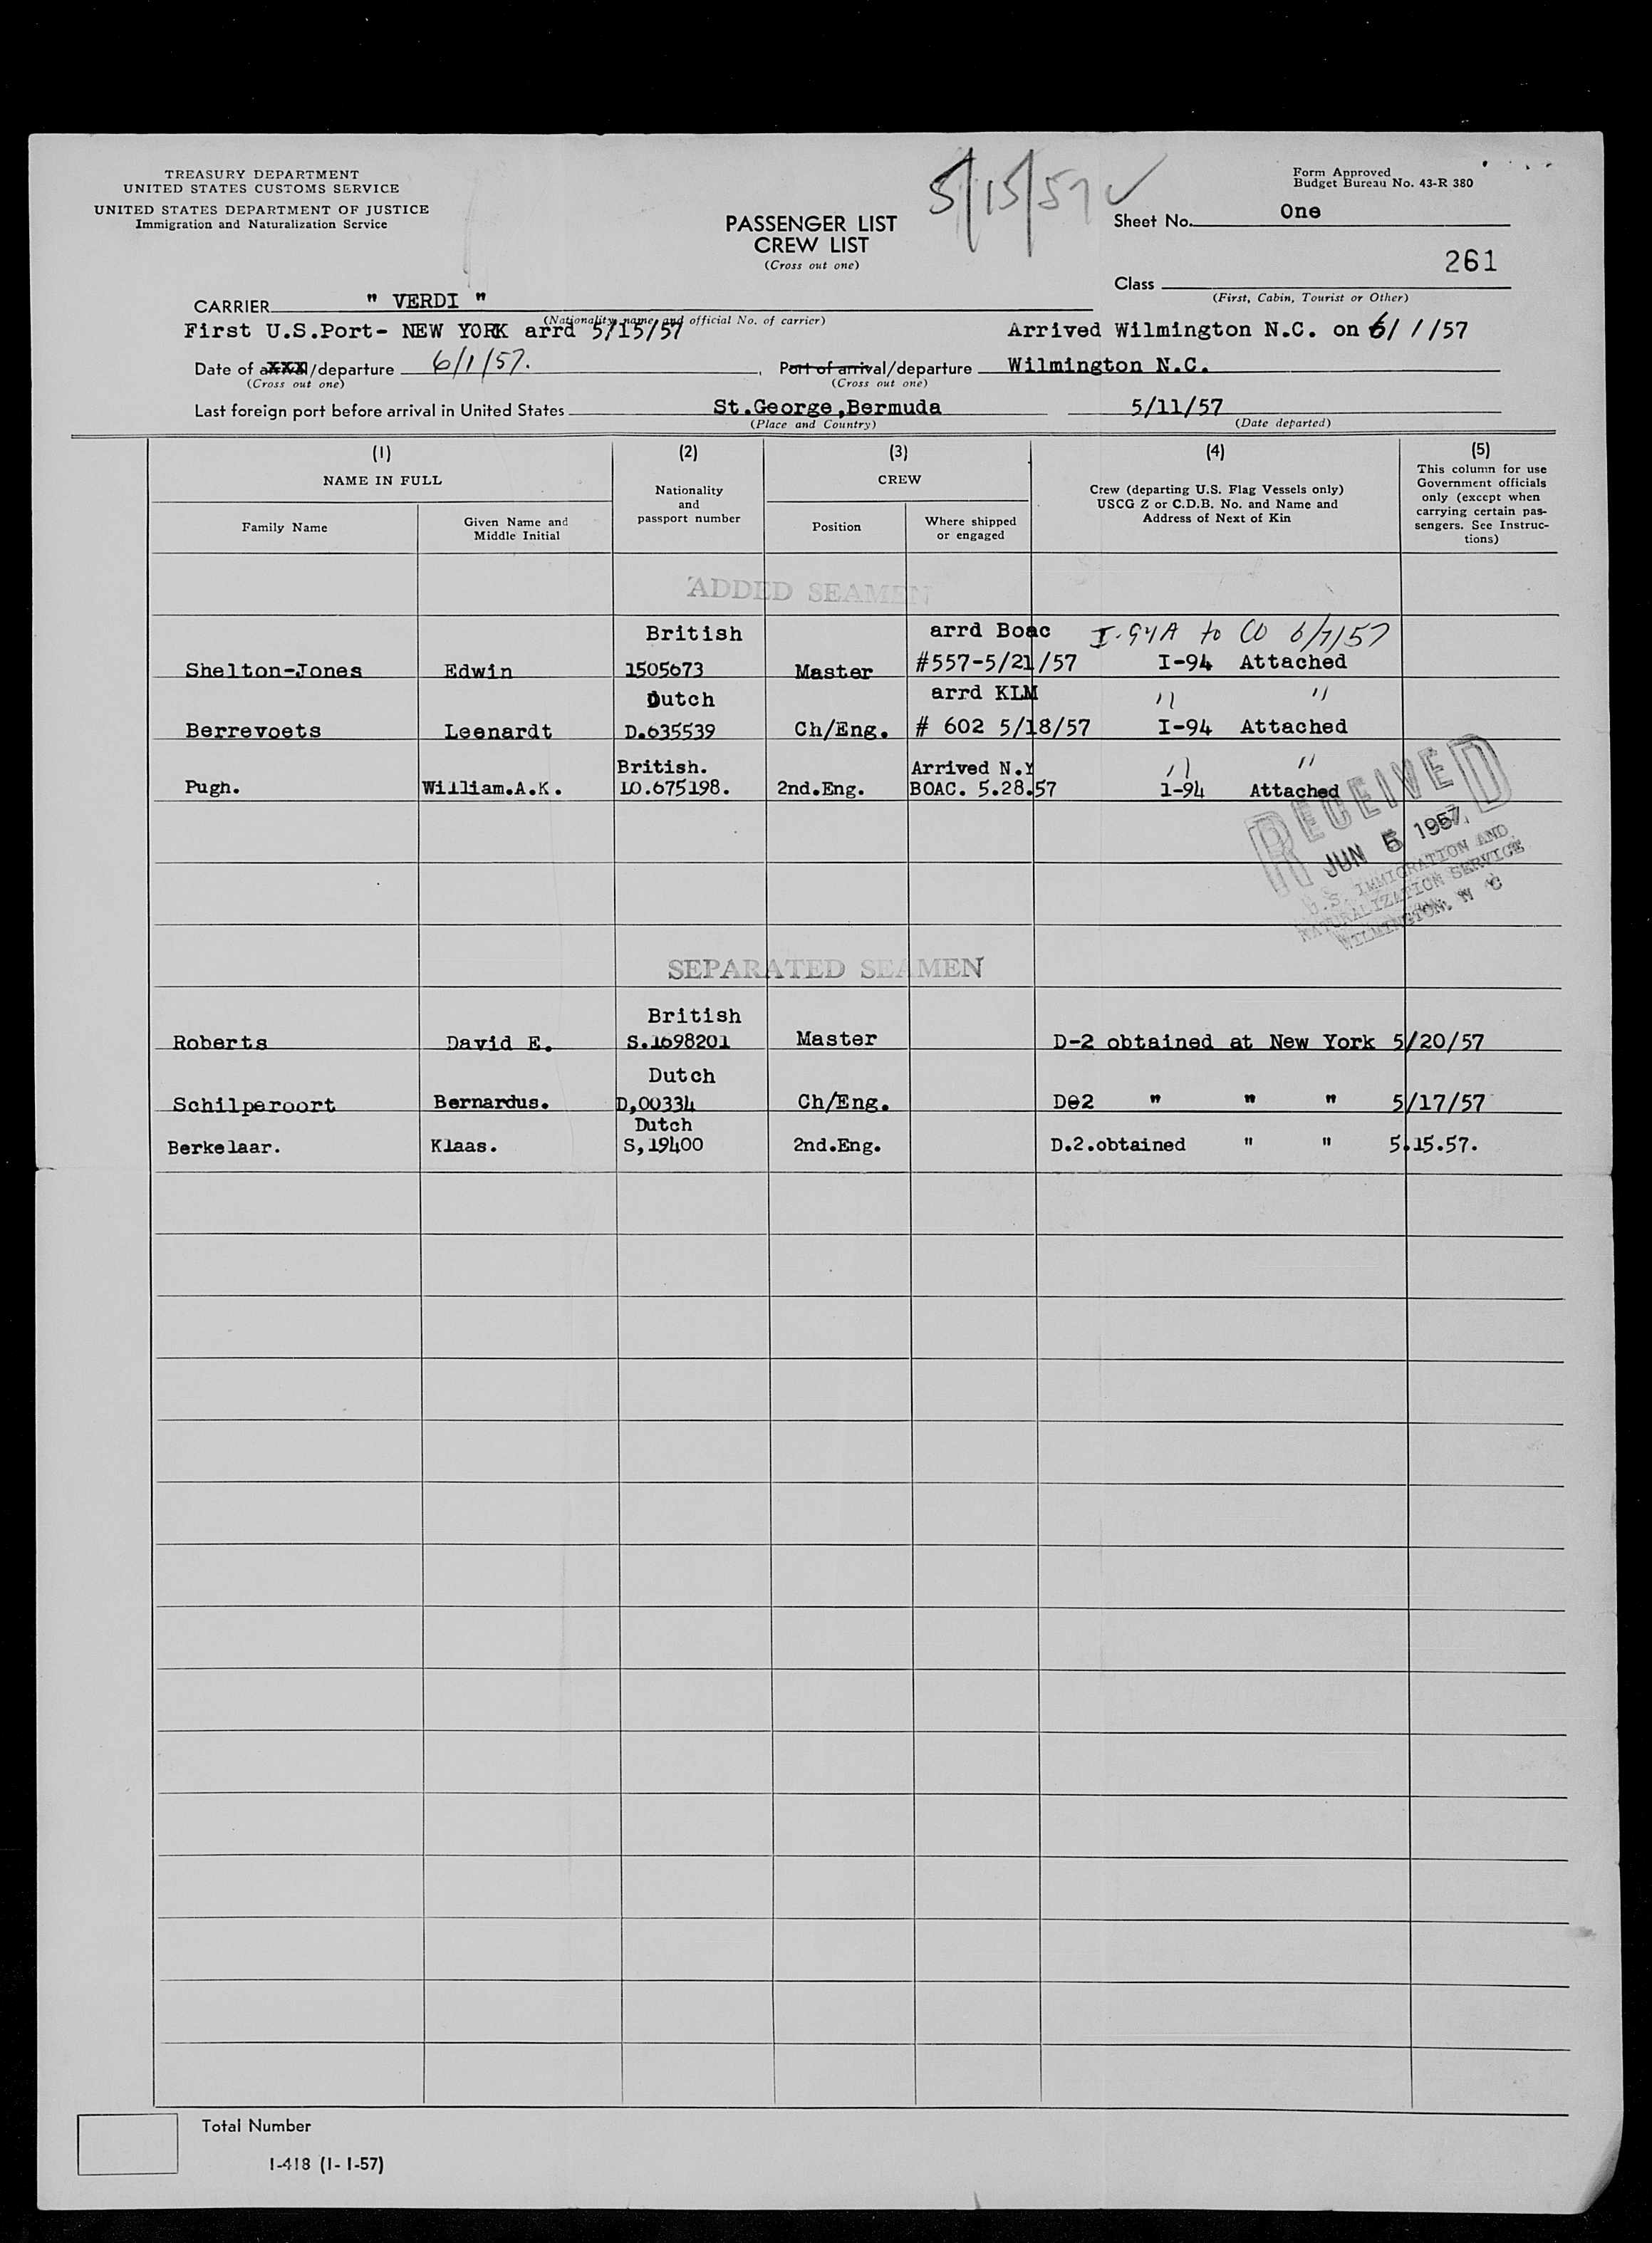 TREASURY DEPARTMENT
UNITED STATES CUSTOMS SERVICE
UNITED STATES DEPARTMENT OF JUSTICE
Immigration and Naturalization Service
5/15/57 ✓
PASSENGER LIST
CREW LIST
(Cross out one)
Form Approved
Budget Bureau No. 43-R 380
Sheet No. One
261
Class
(First, Cabin, Tourist or Other)
CARRIER " VERDI "
(Nationality, name, and official No. of carrier)
First U.S.Port- NEW YORK arrd 5/15/57 Arrived Wilmington N.C. on 6/ 1 /57
Date of axxxl/departure 6/1/57. , Port of arrival/departure Wilmington N.C.
(Cross out one) (Cross out one)
Last foreign port before arrival in United States St.George,Bermuda 5/11/57
(Place and Country) (Date departed)
(1) (2) (3) (4) (5)
NAME IN FULL
Family Name
Given Name and
Middle Initial
Nationality
and
passport number
CREW
Position
Where shipped
or engaged
Crew (departing U.S. Flag Vessels only)
USCG Z or C.D.B. No. and Name and
Address of Next of Kin
This column for use
Government officials
only (except when
carrying certain pas-
sengers. See Instruc-
tions)
ADDED SEAMEN
British arrd Boac I-94A to CO 6/7/57
Shelton-Jones Edwin 1505673 Master #557-5/21/57 I-94 Attached
Dutch arrd KLM " "
Berrevoets Leenardt D.635539 Ch/Eng. # 602 5/18/57 I-94 Attached
British. Arrived N.Y " "
Pugh. William.A.K. LO.675198. 2nd.Eng. BOAC. 5.28.57 1-94 Attached
RECEIVED
JUN 5 1957
U.S. IMMIGRATION AND
NATURALIZATION SERVICE
WILMINGTON, N C
SEPARATED SEAMEN
British
Roberts David E. S.1698201 Master D-2 obtained at New York 5/20/57
Dutch
Schilperoort Bernardus. D,00334 Ch/Eng. D02 " " " 5/17/57
Dutch
Berkelaar. Klaas. S,19400 2nd.Eng. D.2.obtained " " 5.15.57.
Total Number
I-418 (1-1-57)